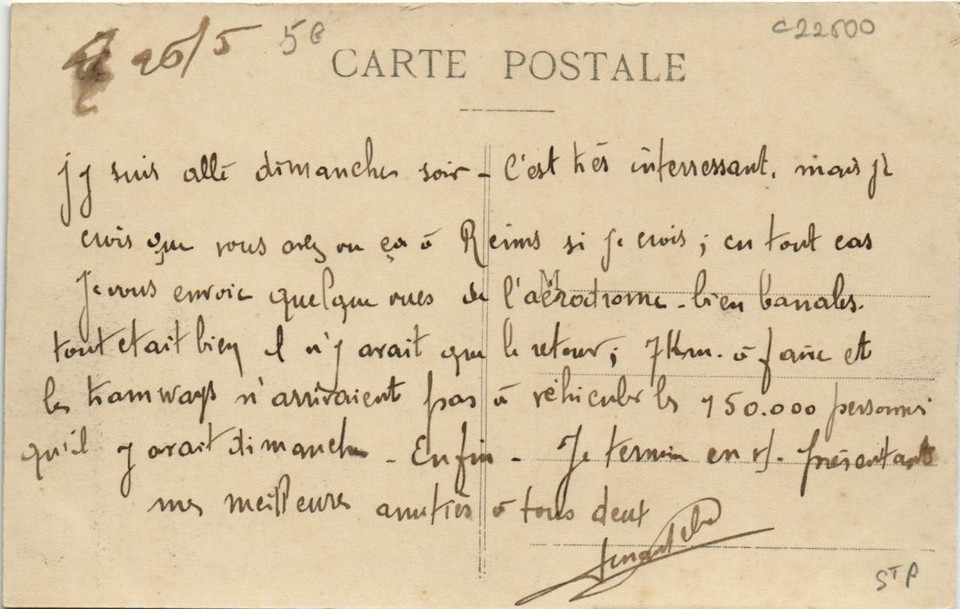 26/5 5e C22500
CARTE POSTALE
j'y suis allé dimanche soir - c'est très interressant, mais je
crois que vous avez vu ça à Reims si je crois ; en tout cas
je vous envoie quelque vues de l'aérodrome - bien banales.
M
tout etait bien il n'y avait que le retour ; 7Km. à faire et
les tramways n'arrivaient pas à véhiculer les 150.000 personnes
qu'il y avait dimanche - Enfin - Je termine en présentant
mes meilleures amitiés à tous deux
ST P